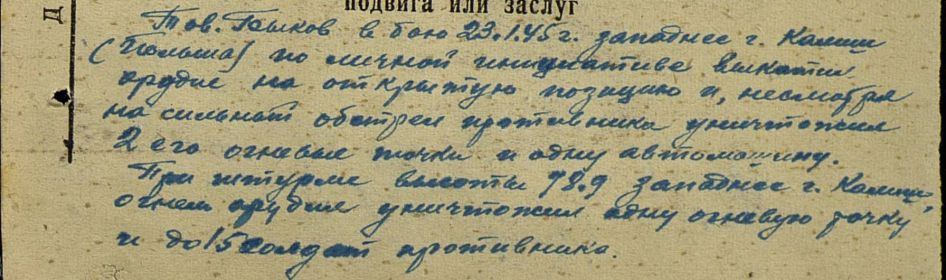 подвига или заслуг
Тов. Быков в бою 23.1.45 г. западнее г. Калиш
(Польша) по личной инициативе выкатил
орудие на открытую позицию и, несмотря
на сильный обстрел противника уничтожил
2 его огневые точки и одну автомашину.
При штурме высоты 78.9 западнее г. Калиш
огнем орудия уничтожил одну огневую точку
и до 15 солдат противника.
Д